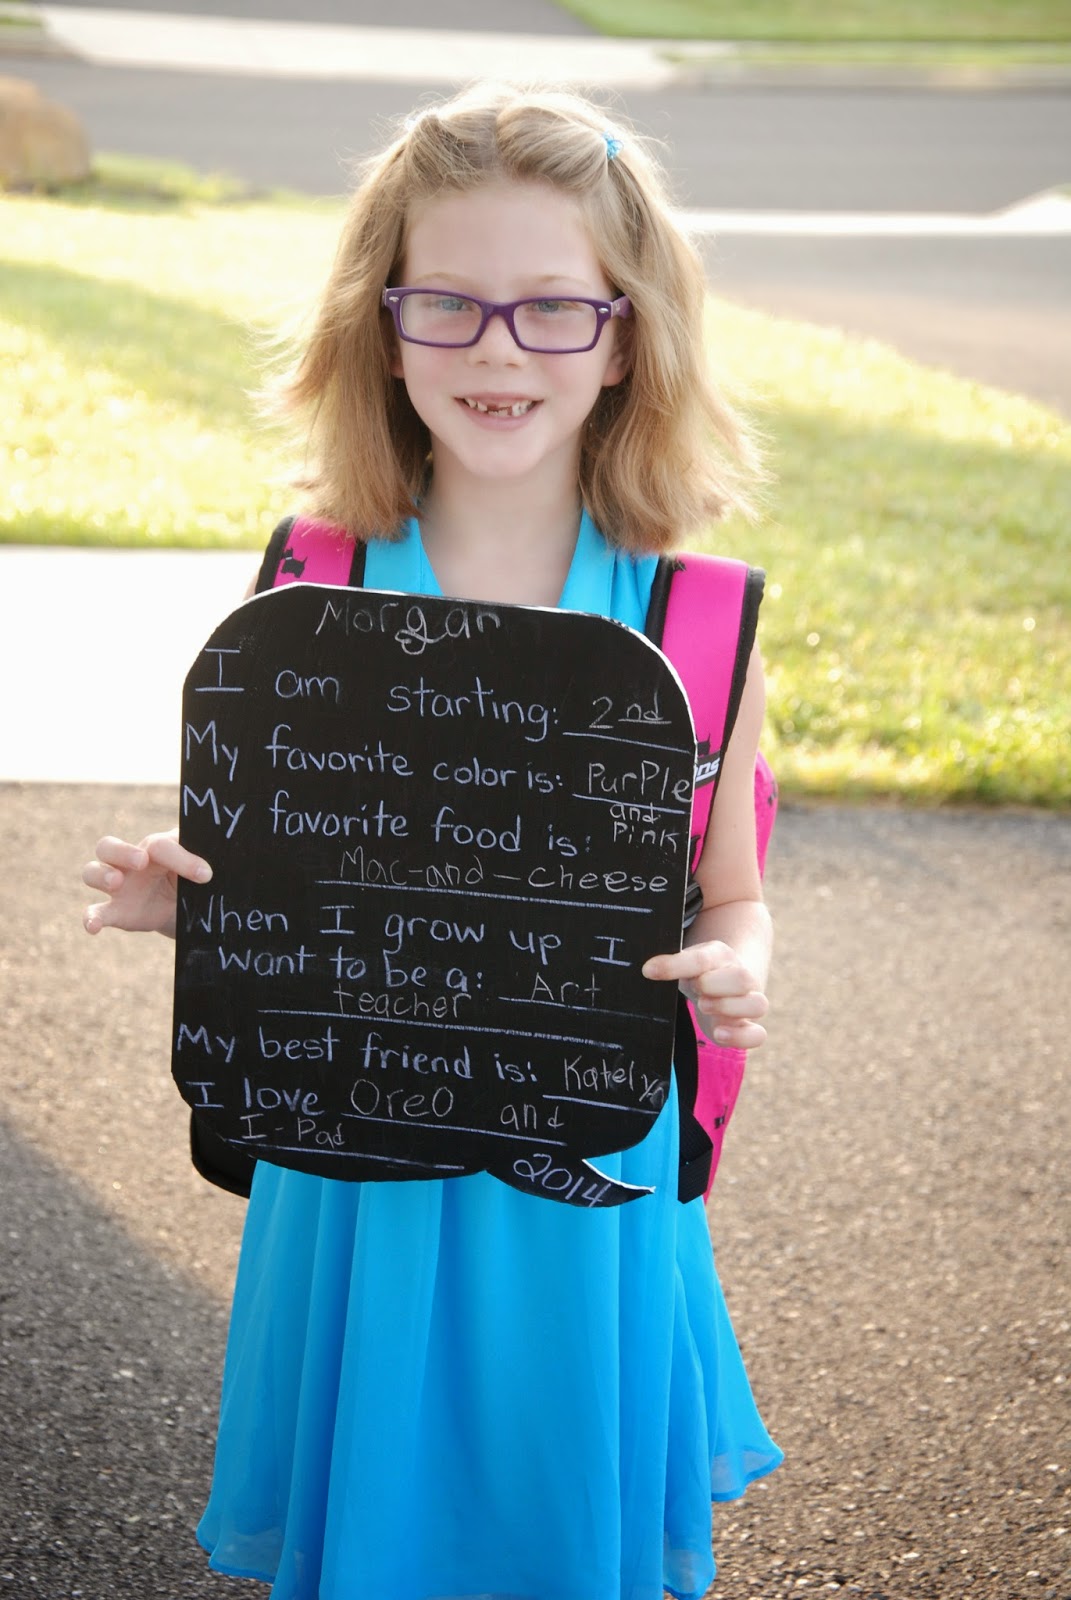 Morgan
I am starting: 2nd
My favorite color is: PurPle
and
Pink
My favorite food is:
Mac-and-cheese
When I grow up I
want to be a: Art
teacher
My best friend is: Katelyn
I love Oreo and
I-Pad
2014